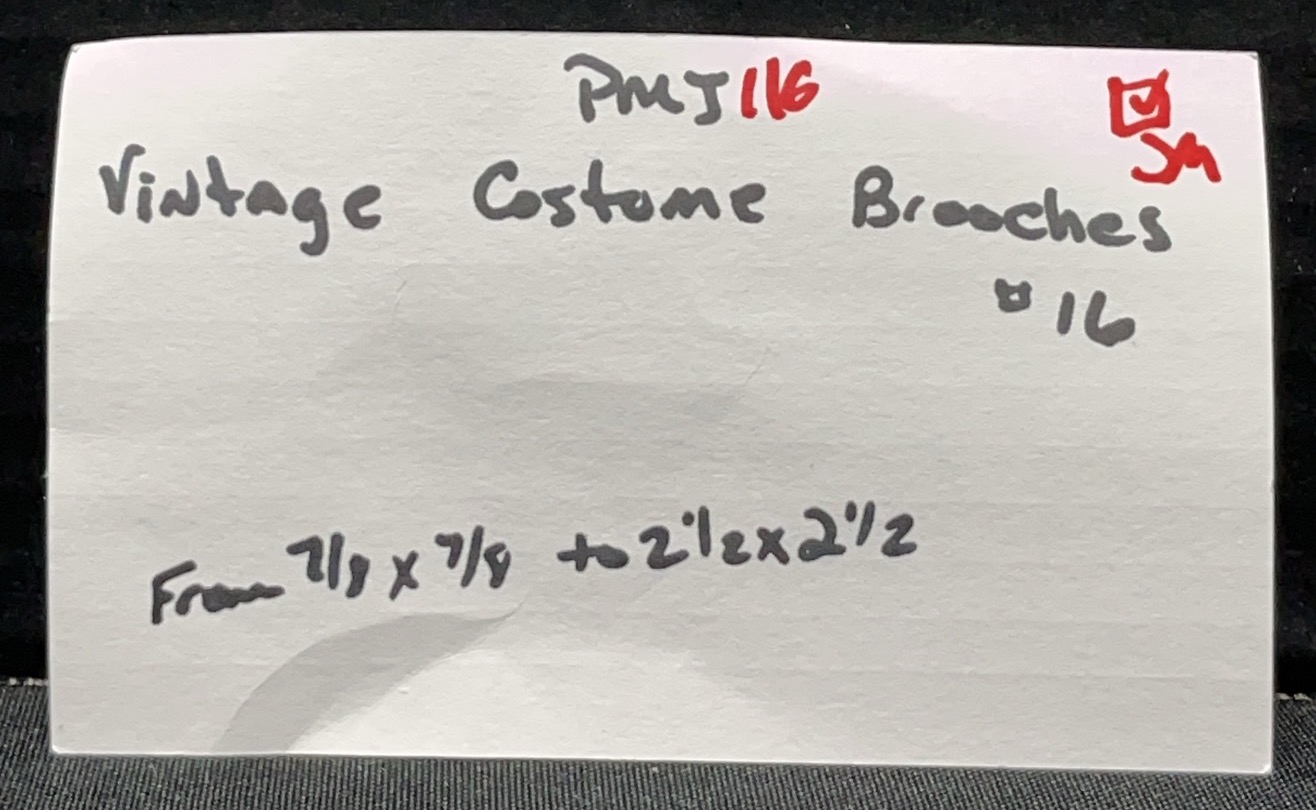 PMJ116
Vintage Costume Brooches
#16
From 7/8 x 7/8 to 2 1/2 x 2 1/2